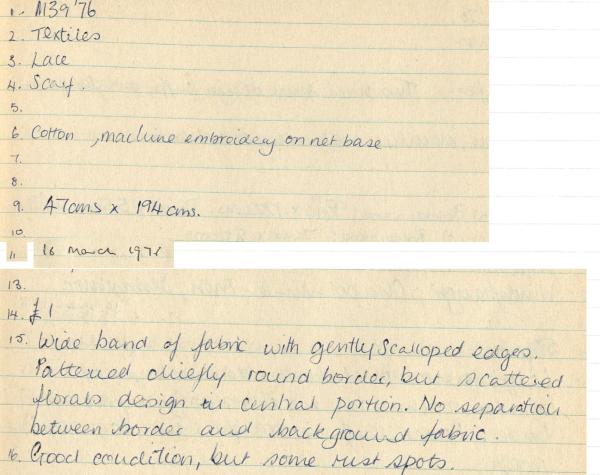 1. M39'76
2. Textiles
3. Lace
4. Scarf.
5.
6. Cotton, machine embroidery on net base
7.
8.
9. 47cms x 194cms.
10.
11 16 March 1976
13.
14. £1
15. Wide band of fabric with gently scalloped edges.
Patterned chiefly round border, but scattered
florals design in central portion. No separation
between border and background fabric.
16. Good condition, but some rust spots.